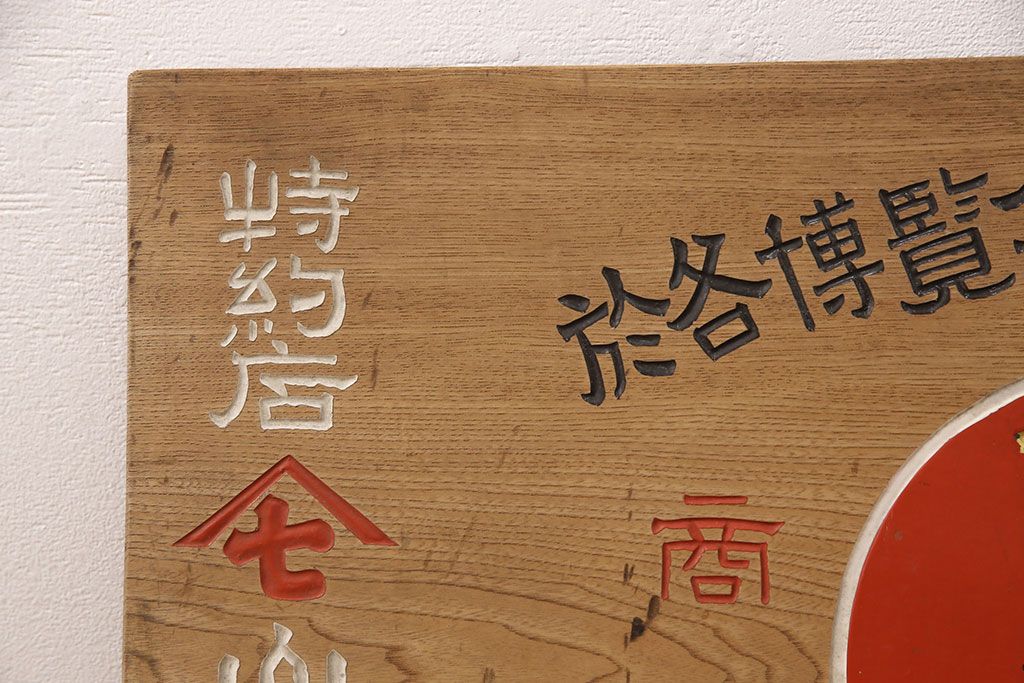 於各博覧
商
特約店
七